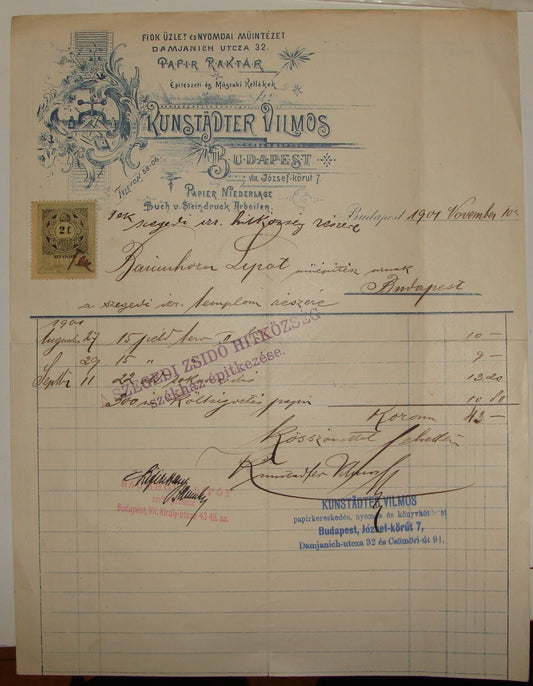 FIOK ÜZLET és NYOMDAI MŰINTÉZET
DAMJANICH UTCZA 32.
PAPIR RAKTÁR
Építészeti és Műszaki Kellékek
KUNSTÄDTER VILMOS
BUDAPEST
VIII. József-körut 7.
PAPIER NIEDERLAGE
Buch u. Steindruck Arbeiten.
Telefon 58-06.
2 f
szegedi izr. hitközség részére
Budapest 1901 November 10
Baumhorn Lipot műépitész urnak
Budapest
a szegedi izr. templom részére
1901
August 27 15 péld terv II 10 —
29 15 " 9 —
Septb 11 22 13 20
300 Költségvetés papir 10 80
Korona 43 —
A SZEGEDI ZSIDÓ HITKÖZSÉG
székház-építkezése.
Köszönettel felvettem
Kunstädter Vilmos
Budapest, VII. Király-utcza 43-45. sz.
KUNSTÄDTER VILMOS
papirkereskedés, nyomda és könyvkötészet
Budapest, József-körút 7,
Damjanich-utcza 32 és Csömöri-út 91.